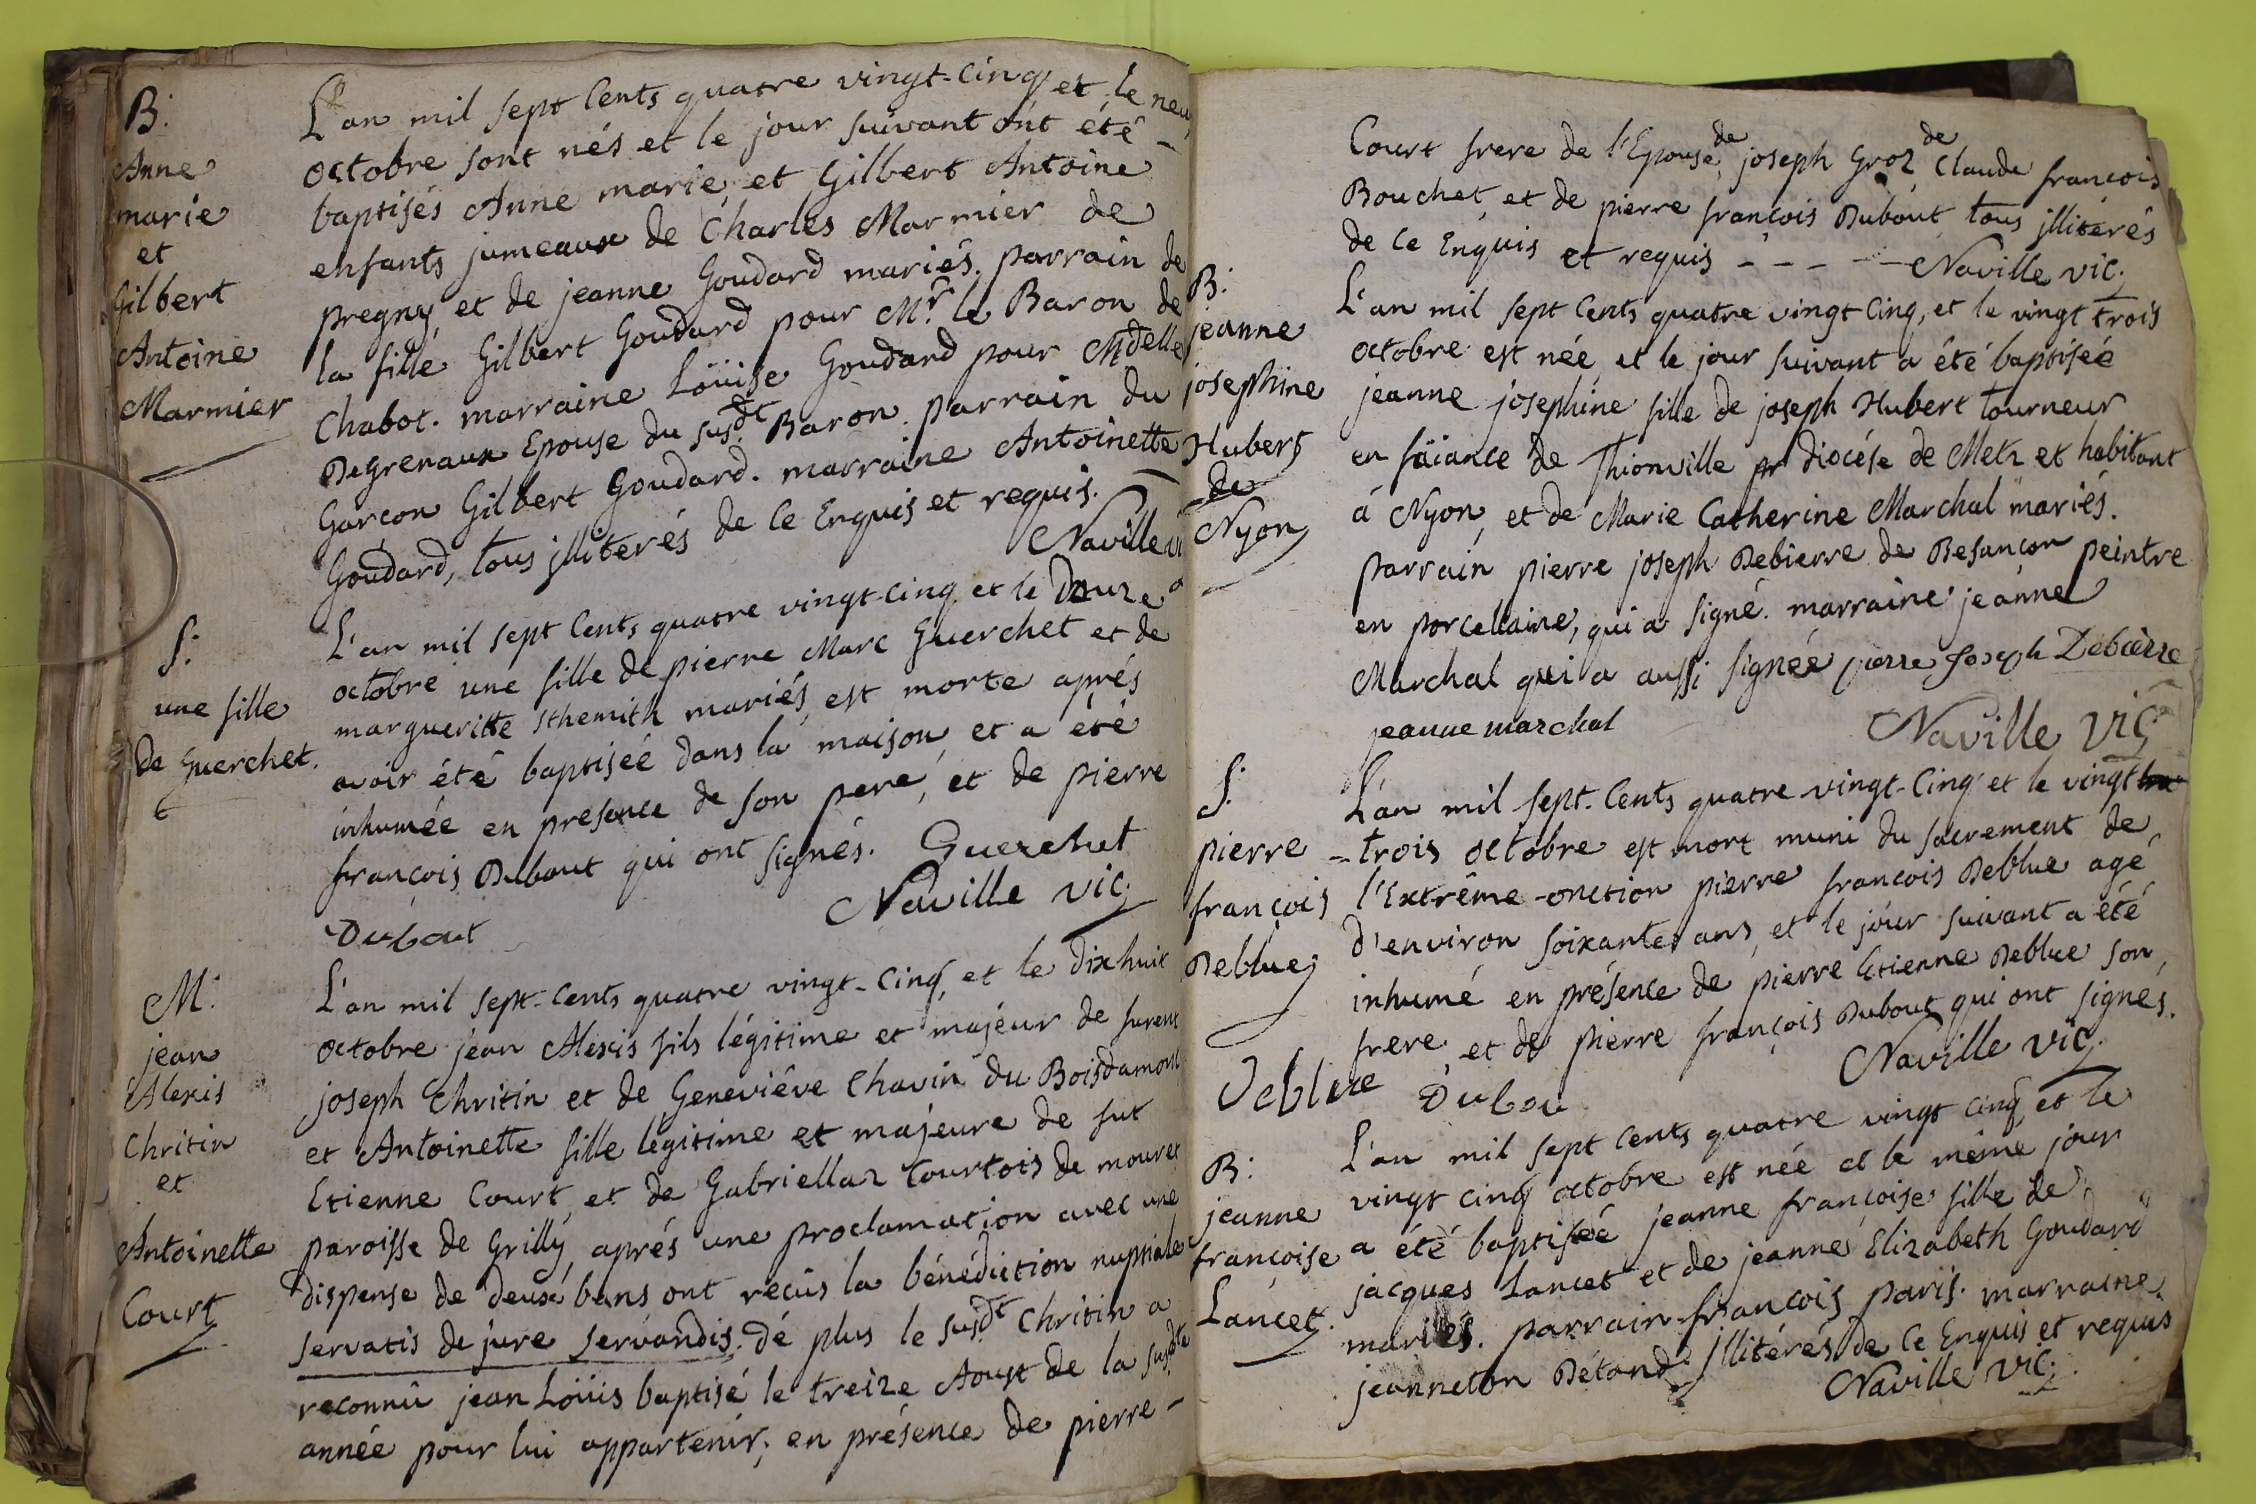 B:
Anne
marie
et
Gilbert
Antoine
Marmier
L'an mil sept Cents quatre vingt-Cinq et le neuf
octobre sont nés et le jour suivant ont été
baptisés Anne marie et Gilbert Antoine
enfants jumeaux de Charles Marmier de
pregny et de jeanne Goudard mariés. parrain de
la fille Gilbert Goudard pour Mr. le Baron de
Chabot. marraine Loüise Goudard pour Mdelle
DeGrenaux Epouse du susdt. Baron. parrain du
Garçon Gilbert Goudard. marraine Antoinette
Goudard, tous jlliterés de Ce Enquis et requis.
Naville vi
S:
une fille
de Guerchet.
L'an mil sept Cents quatre vingt-cinq et le Douze
octobre une fille de pierre Marc Guerchet et de
margueritte Sthemith mariés est morte aprés
avoir été baptisée dans la maison, et a été
inhumée en presence de son pere, et de pierre
françois Dubout qui ont signés. Guerchet
Naville vic.
Dubout
M:
jean
Alexis
Chritin
et
Antoinette
Court
L'an mil sept-Cents quatre vingt-Cinq et le dixhuit
octobre jean Alexis fils légitime et majéur de furent
joseph Chritin et de Geneviêve Chavin du Boisdamont
et Antoinette fille légitime et majeure de fut
Etienne Court et de Gabriellaz Courtois de mourex
paroisse de Grilly, aprés une proclamation avec une
dispense de deux bans ont reçûs la bénédiction nuptiale
servatis de jure servandis. dé plus le susdt. Chritin a
reconnû jean Loüis baptisé le treize Aoust de la susdte
année pour lui appartenir; en présence de pierre -
Court frere de l'Epouse, de joseph Groz de Claude françois
Bouchet et de pierre françois Dubout tous jllitérés
de Ce Enquis et requis - - - - - Naville vic.
B:
jeanne
josephine
Hubert
de
Nyon
L'an mil sept Cents quatre vingt Cinq, et le vingt trois
octobre est née et le jour suivant a été baptisée
jeanne josephine fille de joseph Hubert tourneur
en faïance de Thionville diocése de Metz et habitant
á Nyon, et de Marie Catherine Marchal mariés.
parrain pierre joseph Debierre de Besançon peintre
en porcellaine, qui a signé. marraine jeanne
Marchal qui a aussi signée pierre Joseph Debierre
jeanne marchal
Naville Vic.
S:
pierre
françois
Deblue
L'an mil sept-Cents quatre-vingt-Cinq et le vingt
-trois octobre est mort muni du sacrement de
l'Extrême-onction pierre françois Deblue agé
d'environ soixante ans, et le jour suivant a été
inhumé en présence de pierre Etienne Deblue son
frere et de pierre françois Dubout qui ont signés.
Naville Vic.
Deblue Dubou
B:
jeanne
françoise
Lancet.
L'an mil sept Cents quatre vingt cinq et le
vingt cinq octobre est née et le même jour
a été baptisée jeanne françoise fille de
jacques Lancet et de jeanne Elizabeth Goudard
mariés. parrain françois paris. marraine
jeanneton Détand. jllitérés de Ce Enquis et requis
Naville Vic.